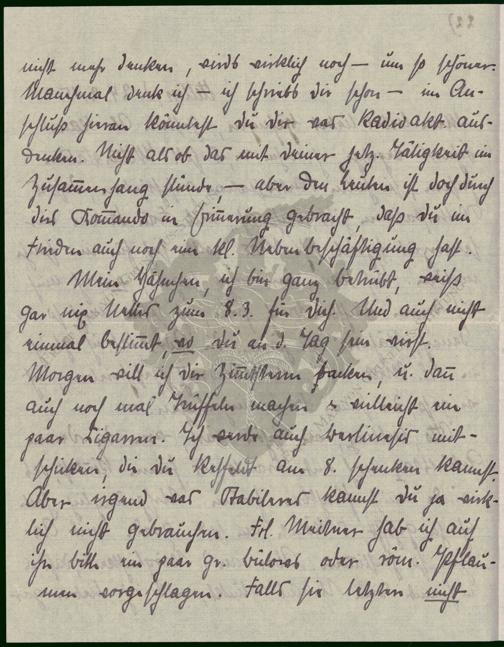 nicht mehr denken, wirds wirklich noch — um so schöner.
Manchmal denk ich — ich schriebs dir schon — im An-
schluß hieran könntest du dir was Radioakt. aus-
denken. Nicht als ob das mit deiner jetz. Tätigkeit im
Zusam̅enhang stünde, — aber den Leuten ist doch durch
dies Kom̅ando in Erin̅erung gebracht, daß du im
Frieden auch noch eine kl. Nebenbeschäftigung hast.
Mein Hähnchen, ich bin ganz betrübt, weiß
gar nix Nettes zum 8.3. für dich. Und auch nicht
einmal bestim̅t, wo du an d. Tag sein wirst.
Morgen will ich dir Zimtsterne backen, u. dan̅
auch noch mal Trüffeln machen & vielleicht ein
paar Zigarren. Ich werde auch mit-
schicken, die du am 8. schenken kannst.
Aber irgend was Stabileres kannst du ja wirk-
lich nicht gebrauchen. Frl. Meitner hab ich auf
ihr bitten ein paar gr. oder röm. Pflau-
men vorgeschlagen. Falls sie letzten nicht